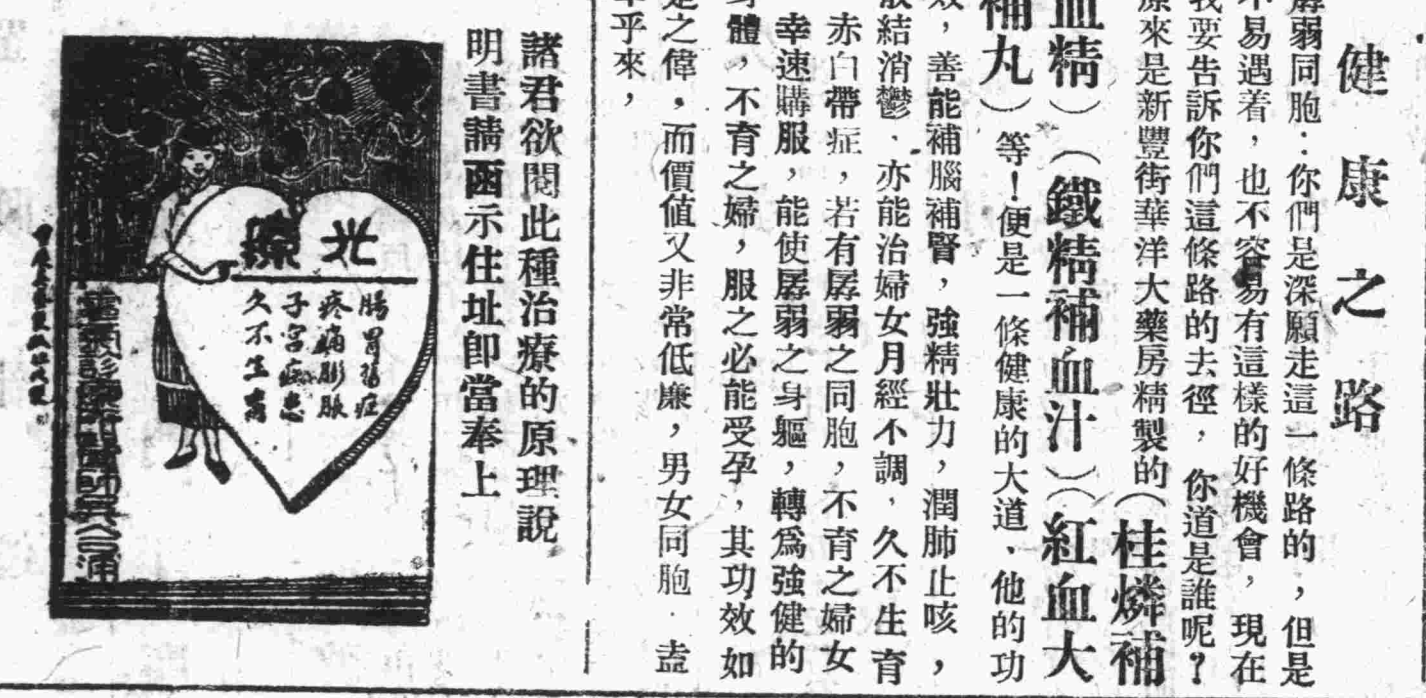 健康之路
孱弱同胞:你們是深願走這一條路的,但是
不易遇着,也不容易有這樣的好機會,現在
我要告訴你們這條路的去徑,你道是誰呢?
原來是新豐街華洋大藥房精製的(桂燐補
血精)(鐵精補血汁)(紅血大
補丸)等!便是一條健康的大道、他的功
效,善能補腦補腎,強精壯力,潤肺止咳,
散結消鬱.亦能治婦女月經不調.久不生育
赤白帶症,若有孱弱之同胞,不育之婦女
幸速購服,能使孱弱之身軀,轉爲強健的
身體.不育之婦,服之必能受孕,其功效如
是之偉.而價值又非常低廉,男女同胞.盍
乎來,
諸君欲閱此種治療的原理說
明書請函示住址卽當奉上
光
腸胃弱症
疼痛膨脹
子宮病患
久不生育
電氣診療所醫師